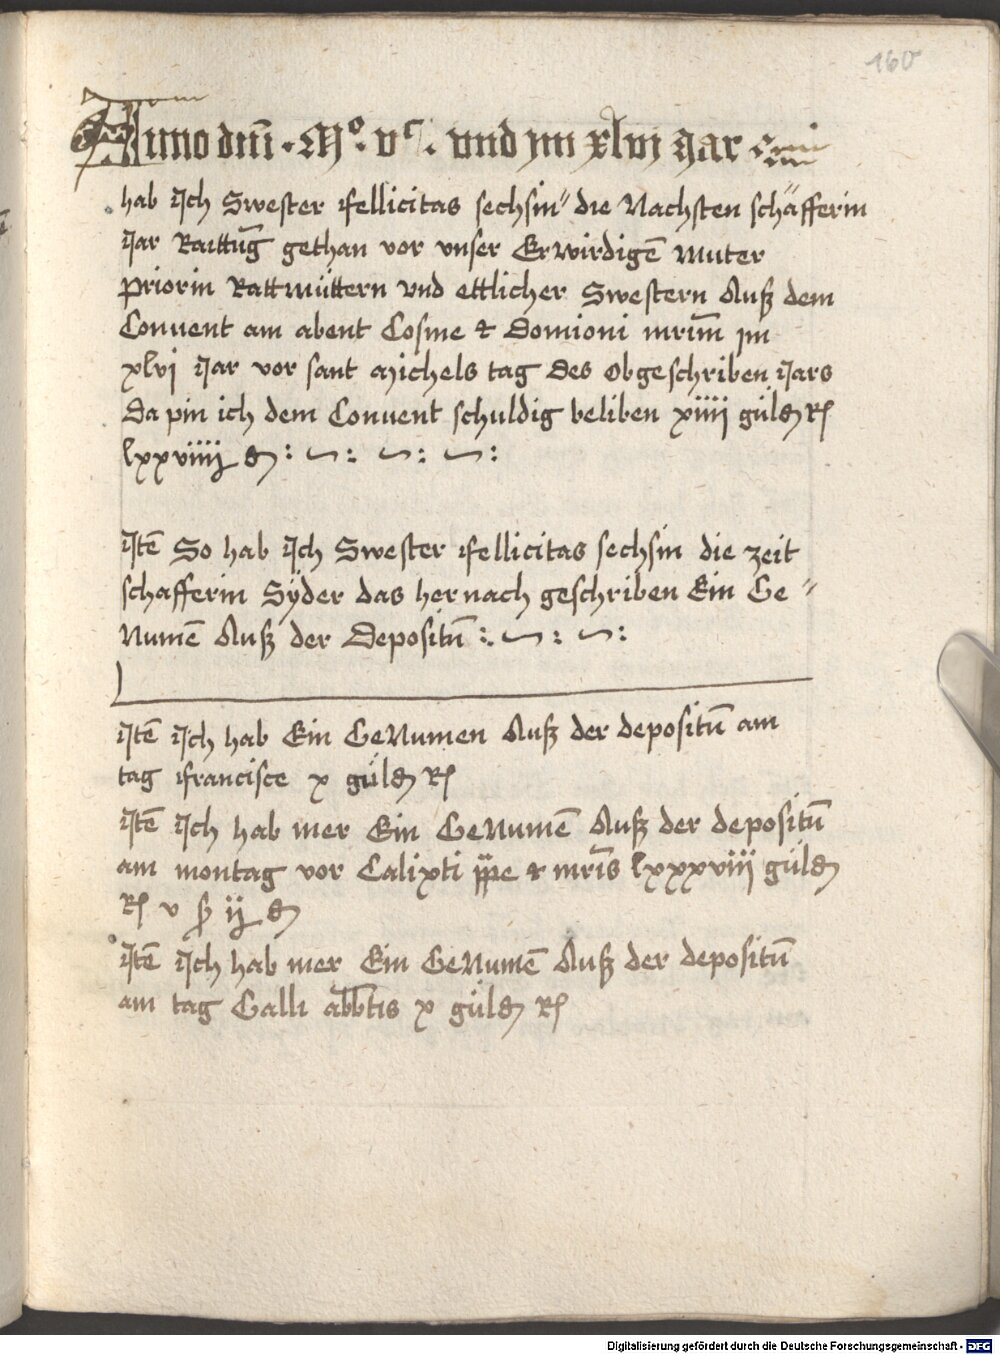 160
Anno dnī · Mº · vᶜ · vnd ym xlvj Jar
hab Jch Swester ffellicitas sechsin die Nachsten schäfferin
Jar Raittūg gethan vor vnser Erwirdigē Muter
priorin Rattmüttern vnd ettlicher Swestern Auß dem
Conuent am abent Cosme & Domioni mrīm jm
xlvj Jar vor sant Michels tag des Obgeschriben Jars
Da pin ich dem Conuent schuldig beliben xiiij guld R
lxxviiij ₰
Jtē So hab Jch Swester ffellicitas sechsin die zeit
schafferin Sÿder das hernach geschriben Ein Ge"
Numē Auß der Depositū
Jtē Jch hab Ein GeNumen Auß der depositū am
tag ffrancisce x guld R
Jtē Jch hab mer Ein GeNumē Auß der depositū
am montag vor Calixti ppe & mrīs lxxxviij guld
R v ß ij ₰
Jtē Jch hab mer Ein GeNumē Auß der depositū
am tag Galli abbtis x guld R
Digitalisierung gefördert durch die Deutsche Forschungsgemeinschaft - DFG